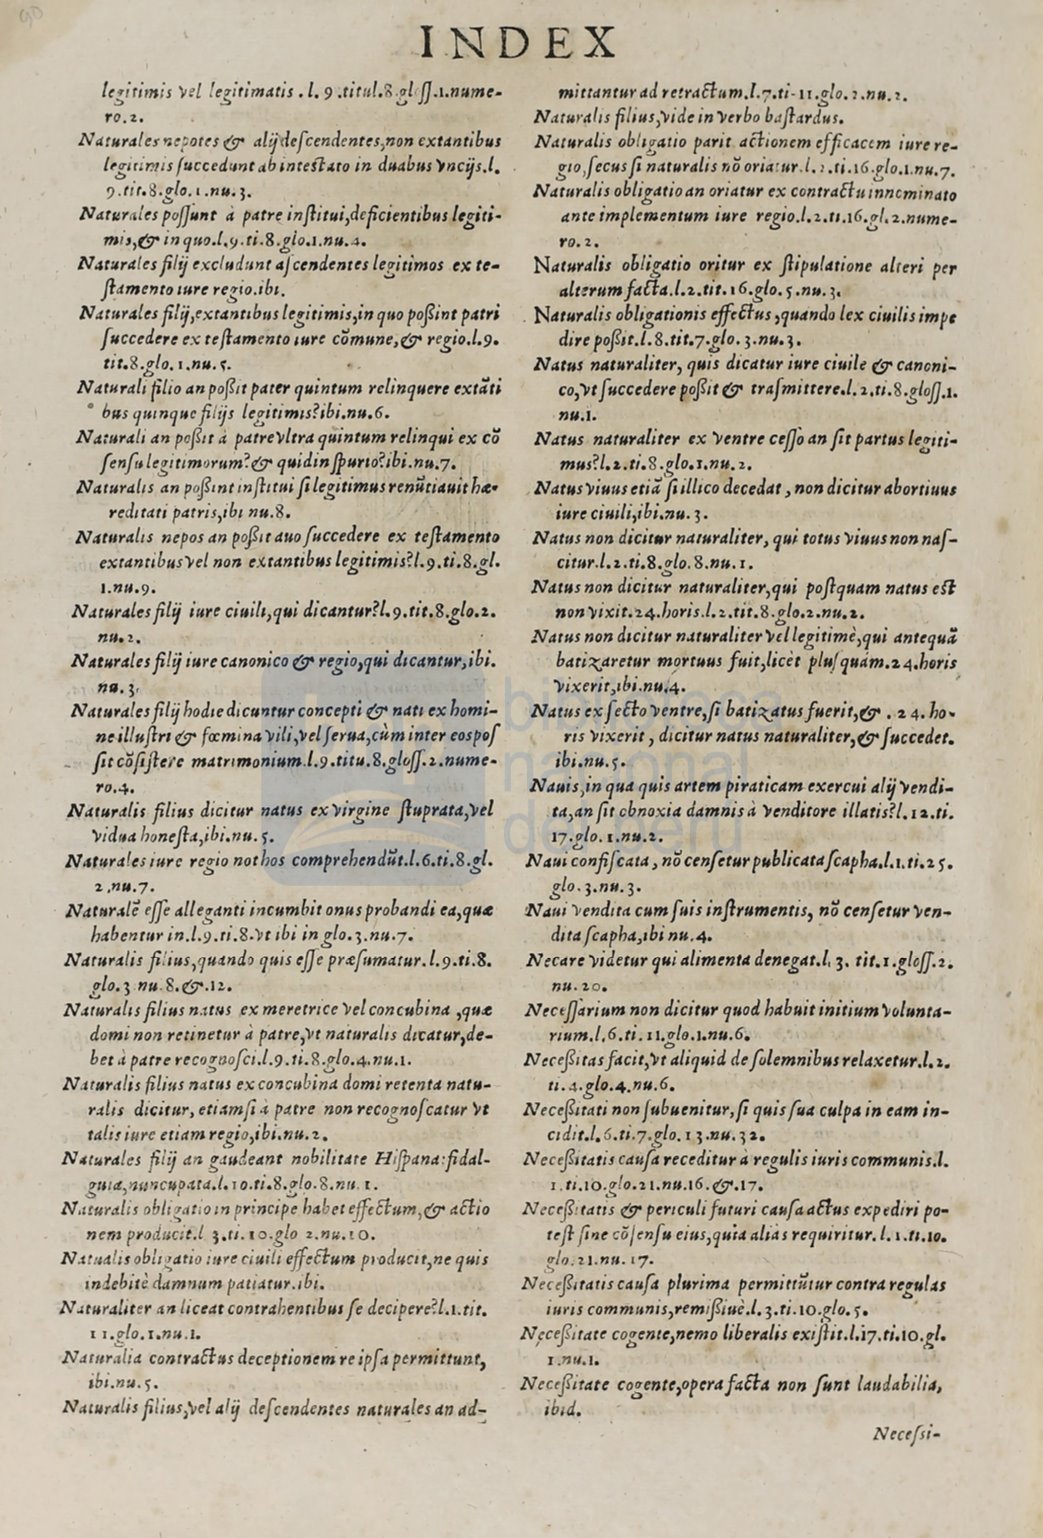 INDEX
legitimis vel legitimatis . l. 9 .titul.8.gloſſ.1.nume-
ro.2.
Naturales nepotes & alij deſcendentes,non extantibus
legitimis ſuccedunt ab inteſtato in duabus vncijs.l.
9.tit.8.glo.1.nu.3.
Naturales poſſunt à patre inſtitui,deficientibus legiti-
mis,& in quo.l.9.ti.8.glo.1.nu.4.
Naturales filij excludunt aſcendentes legitimos ex te-
ſtamento iure regio.ibi.
Naturales filij,extantibus legitimis,in quo poßint patri
ſuccedere ex teſtamento iure cōmune,& regio.l.9.
tit.8.glo.1.nu.5.
Naturali filio an poßit pater quintum relinquere extāti
bus quinque filijs legitimis?ibi.nu.6.
Naturali an poßit à patre vltra quintum relinqui ex cō
ſenſu legitimorum?& quid in ſpurio?ibi.nu.7.
Naturalis an poßint inſtitui ſi legitimus renūtiauit hæ-
reditati patris,ibi nu.8.
Naturalis nepos an poßit auo ſuccedere ex teſtamento
extantibus vel non extantibus legitimis?l.9.ti.8.gl.
1.nu.9.
Naturales filij iure ciuili,qui dicantur?l.9.tit.8.glo.2.
nu.2.
Naturales filij iure canonico & regio,qui dicantur,ibi.
nu.3.
Naturales filij hodie dicuntur concepti & nati ex homi-
ne illuſtri & fœmina vili,vel ſerua,cùm inter eos poſ
ſit cōſiſtere matrimonium.l.9.titu.8.gloſſ.2.nume-
ro.4.
Naturalis filius dicitur natus ex virgine ſtuprata,vel
vidua honeſta,ibi.nu.5.
Naturales iure regio nothos comprehendūt.l.6.ti.8.gl.
2.nu.7.
Naturalē eſſe alleganti incumbit onus probandi ea,quæ
habentur in.l.9.ti.8.vt ibi in glo.3.nu.7.
Naturalis filius,quando quis eſſe præſumatur.l.9.ti.8.
glo.3 nu.8.&.12.
Naturalis filius natus ex meretrice vel concubina ,quæ
domi non retinetur à patre,vt naturalis dicatur,de-
bet à patre recognoſci.l.9.ti.8.glo.4.nu.1.
Naturalis filius natus ex concubina domi retenta natu-
ralis dicitur, etiamſi à patre non recognoſcatur vt
talis iure etiam regio,ibi.nu.2.
Naturales filij an gaudeant nobilitate Hiſpana:fidal-
guia,nuncupata.l.10.ti.8.glo.8.nu.1.
Naturalis obligatio in principe habet effectum,& actio
nem producit.l 3.ti.10.glo 2.nu.10.
Natualis obligatio iure ciuili effectum producit,ne quis
indebitè damnum patiatur.ibi.
Naturaliter an liceat contrahentibus ſe decipere?l.1.tit.
11.glo.1.nu.1.
Naturalia contractus deceptionem re ipſa permittunt,
ibi.nu.5.
Naturalis filius,vel alij deſcendentes naturales an ad-
mittantur ad retractum.l.7.ti-11.glo.2.nu.2.
Naturalis filius,vide in verbo baſtardus.
Naturalis obligatio parit actionem efficacem iure re-
gio,ſecus ſi naturalis nō oriatur.l.2.ti.16.glo.1.nu.7.
Naturalis obligatio an oriatur ex contractu innominato
ante implementum iure regio.l.2.ti.16.gl.2.nume-
ro.2.
Naturalis obligatio oritur ex ſtipulatione alteri per
alterum facta.l.2.tit.16.glo.5.nu.3.
Naturalis obligationis effectus ,quando lex ciuilis impe
dire poßit.l.8.tit.7.glo.3.nu.3.
Natus naturaliter, quis dicatur iure ciuile & canoni-
co,vt ſuccedere poßit & traſmittere.l.2.ti.8.gloſſ.1.
nu.1.
Natus naturaliter ex ventre ceſſo an ſit partus legiti-
mus?l.2.ti.8.glo.1.nu.2.
Natus viuus etiā ſi illico decedat , non dicitur abortiuus
iure ciuili,ibi.nu.3.
Natus non dicitur naturaliter, qui totus viuus non naſ-
citur.l.2.ti.8.glo.8.nu.1.
Natus non dicitur naturaliter,qui poſtquam natus eſt
non vixit.24.horis.l.2.tit.8.glo.2.nu.2.
Natus non dicitur naturaliter vel legitimè,qui antequā
batizaretur mortuus fuit,licèt pluſquám.24.horis
vixerit,ibi.nu.4.
Natus ex ſecto ventre,ſi batizatus fuerit,& . 24. ho-
ris vixerit , dicitur natus naturaliter,& ſuccedet.
ibi.nu.5.
Nauis,in qua quis artem piraticam exercui alij vendi-
ta,an ſit obnoxia damnis à venditore illatis?l.12.ti.
17.glo.1.nu.2.
Naui confiſcata , nō cenſetur publicata ſcapha.l.1.ti.25.
glo.3.nu.3.
Naui vendita cum ſuis inſtrumentis, nō cenſetur ven-
dita ſcapha,ibi nu.4.
Necare videtur qui alimenta denegat.l. 3. tit.1.gloſſ.2.
nu.20.
Neceſſarium non dicitur quod habuit initium volunta-
rium.l.6.ti.11.glo.1.nu.6.
Neceßitas facit,vt aliquid de ſolemnibus relaxetur.l.2.
ti.4.glo.4.nu.6.
Neceßitati non ſubuenitur,ſi quis ſua culpa in eam in-
cidit.l.6.ti.7.glo.13.nu.32.
Neceßitatis cauſa receditur à regulis iuris communis.l.
1.ti.10.glo.21.nu.16.&.17.
Neceßitatis & periculi futuri cauſa actus expediri po-
teſt ſine cōſenſu eius,quia aliàs requiritur. l.1.ti.10.
glo.21.nu.17.
Neceßitatis cauſa plurima permittūtur contra regulas
iuris communis,remißiuè.l.3.ti.10.glo.5.
Neceßitate cogente,nemo liberalis exiſtit.l.17.ti.10.gl.
1.nu.1.
Neceßitate cogente,opera facta non ſunt laudabilia,
ibid.
Neceſsi-
biblioteca
nacional
del perú